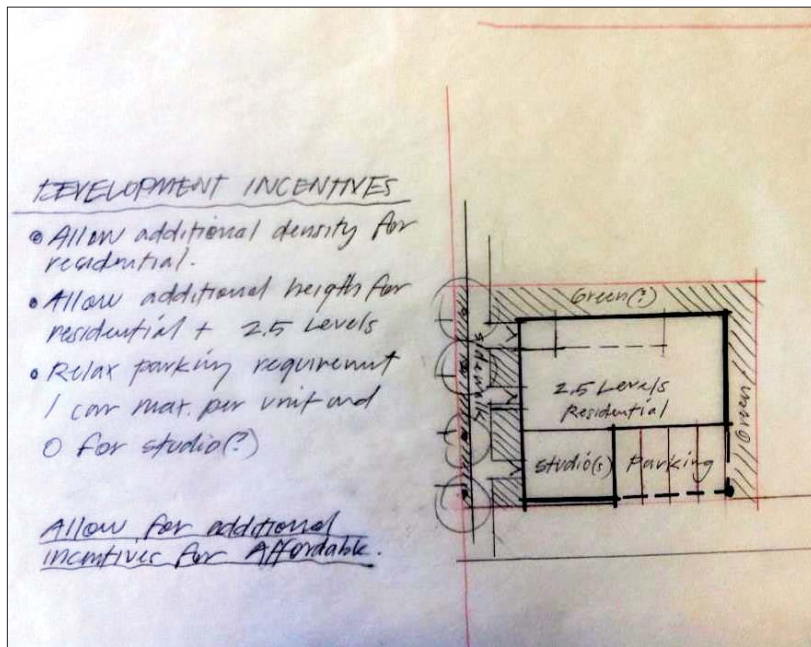 DEVELOPMENT INCENTIVES
• Allow additional density for
residential.
• Allow additional heigth for
residential + 2.5 Levels
• Relax parking requirement
1 car max. per unit and
0 for studio(?)
Allow for additional
incentives for Affordable.
Green(?)
sidewalk
2.5 Levels
Residential
Green
studio(s)
parking